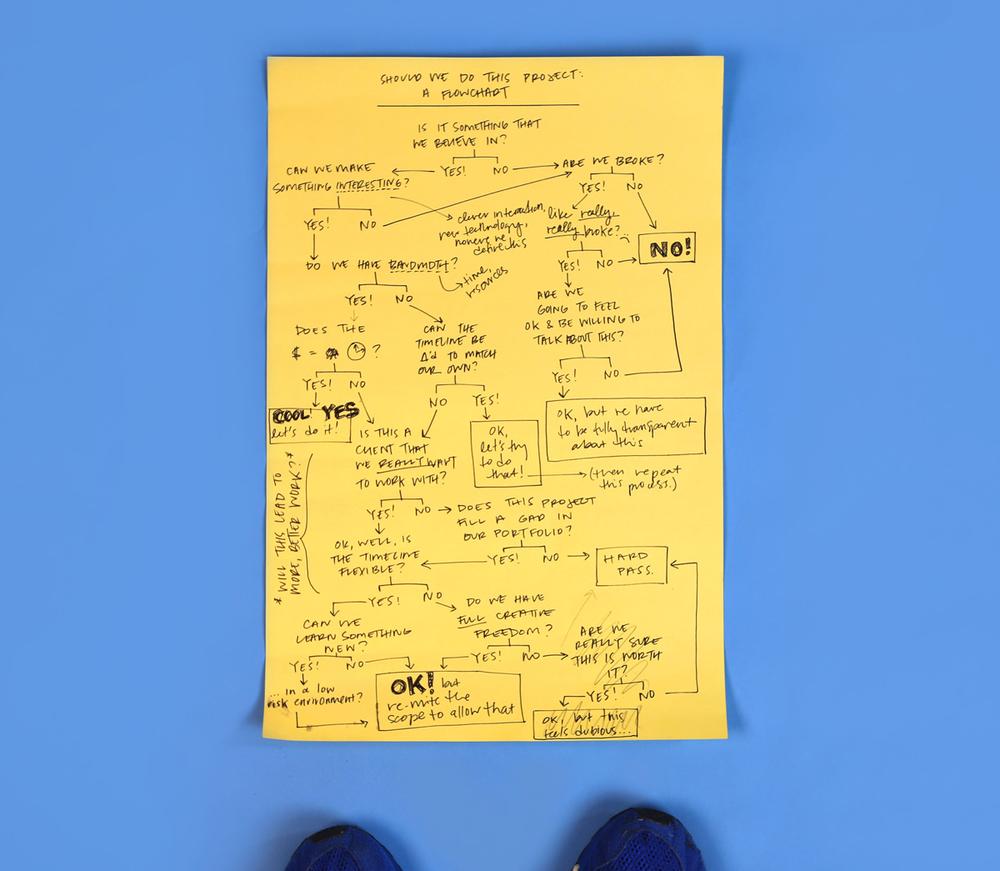 SHOULD WE DO THIS PROJECT:
A FLOWCHART
IS IT SOMETHING THAT
WE BELIEVE IN?
YES! NO
CAN WE MAKE
SOMETHING INTERESTING?
YES! NO
clever interaction,
new technology,
however we
define this
ARE WE BROKE?
YES! NO
like really,
really broke?...
YES! NO
NO!
ARE WE
GOING TO FEEL
OK & BE WILLING TO
TALK ABOUT THIS?
YES! NO
OK, but we have
to be fully transparent
about this
DO WE HAVE BANDWIDTH?
time,
resources
YES! NO
DOES THE
$ = ?
YES! NO
COOL! YES
let's do it!
CAN THE
TIMELINE BE
Δ'd TO MATCH
OUR OWN?
NO YES!
OK,
let's try
to do
that!
(then repeat
this process.)
IS THIS A
CLIENT THAT
WE REALLY WANT
TO WORK WITH?
YES! NO
*WILL THIS LEAD TO
MORE, BETTER WORK?*
DOES THIS PROJECT
FILL A GAP IN
OUR PORTFOLIO?
YES! NO
HARD
PASS.
OK, WELL, IS
THE TIMELINE
FLEXIBLE?
YES! NO
CAN WE
LEARN SOMETHING
NEW?
YES! NO
...in a low
risk environment?
DO WE HAVE
FULL CREATIVE
FREEDOM?
YES! NO
OK! but
re-write the
scope to allow that
ARE WE
REALLY SURE
THIS IS WORTH
IT?
YES! NO
OK! but this
feels dubious...